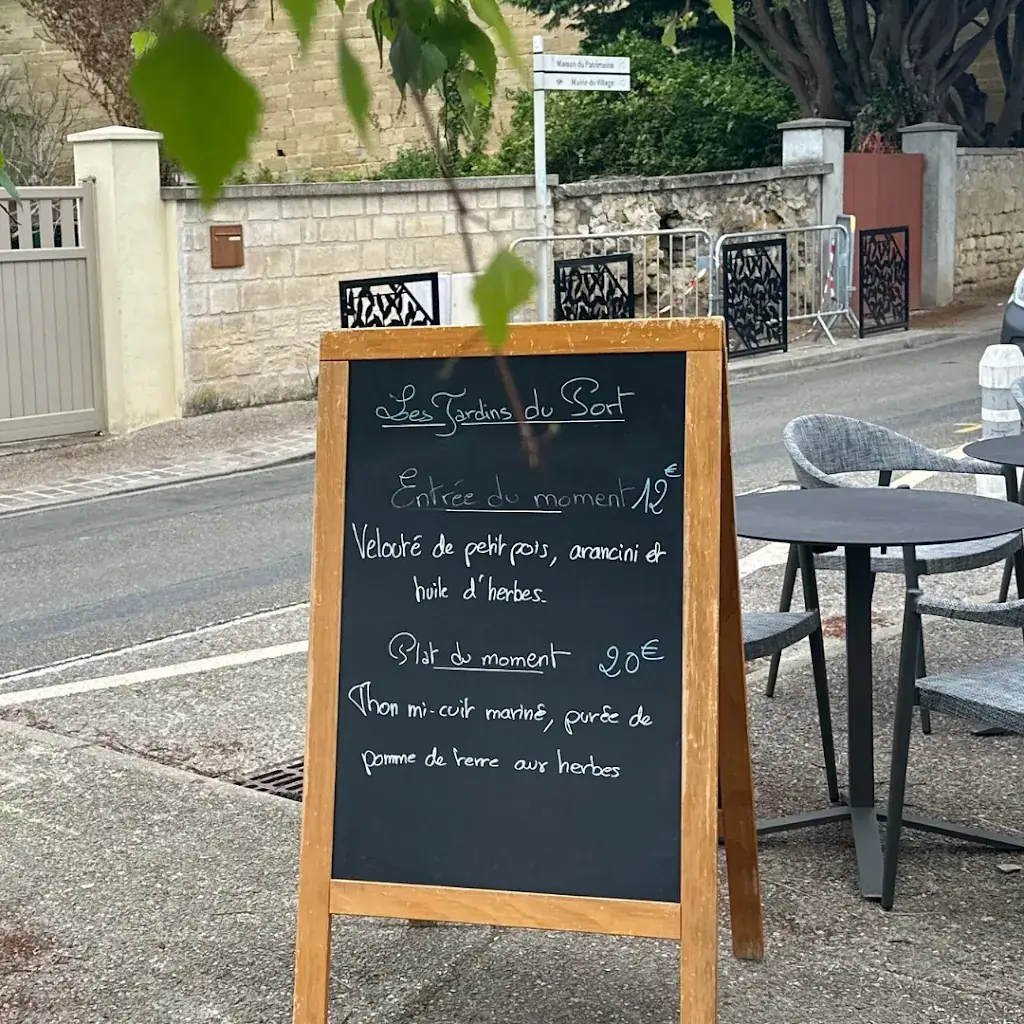 Maison du Patrimoine
Mairie du Village
Les Jardins du Port
Entrée du moment 12€
Velouté de petit pois, arancini et
huile d'herbes.
Plat du moment 20€
Thon mi-cuit mariné, purée de
pomme de terre aux herbes